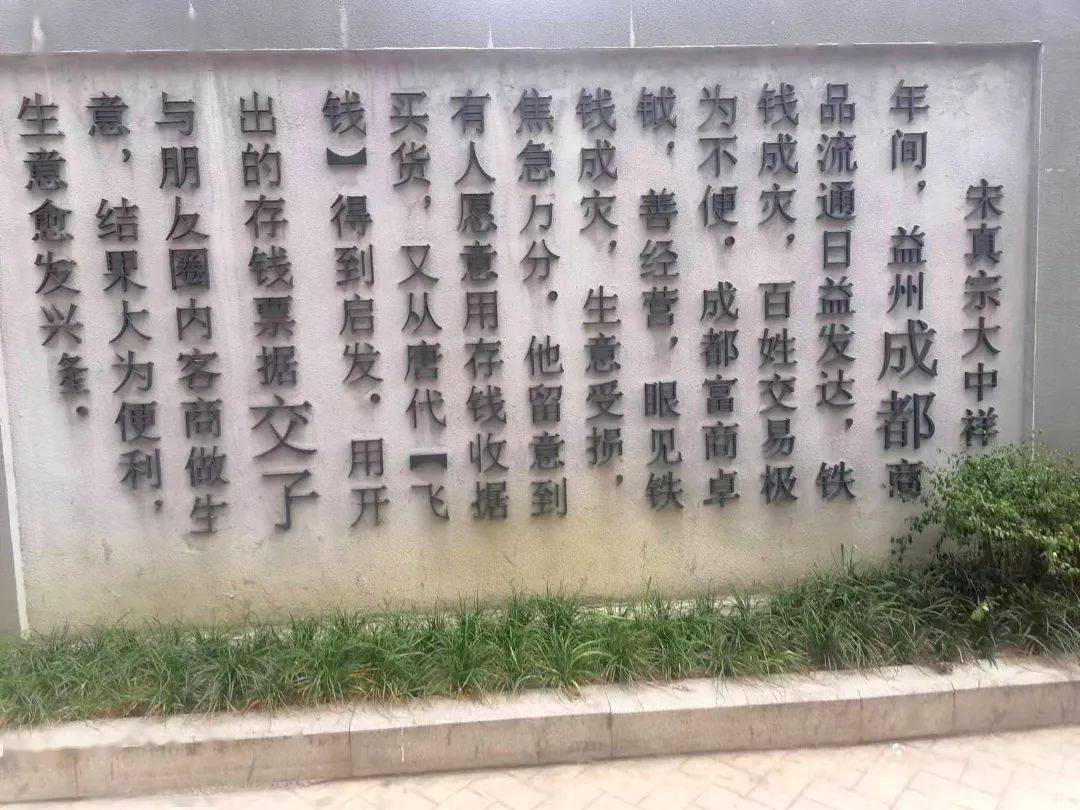 宋真宗大中祥
年间，益州成都商
品流通日益发达，铁
钱成灾，百姓交易极
为不便。成都富商卓
钺，善经营，眼见铁
钱成灾，生意受损，
焦急万分。他留意到
有人愿意用存钱收据
买货，又从唐代【飞
钱】得到启发。用开
出的存钱票据交子
与朋友圈内客商做生
意，结果大为便利，
生意愈发兴。